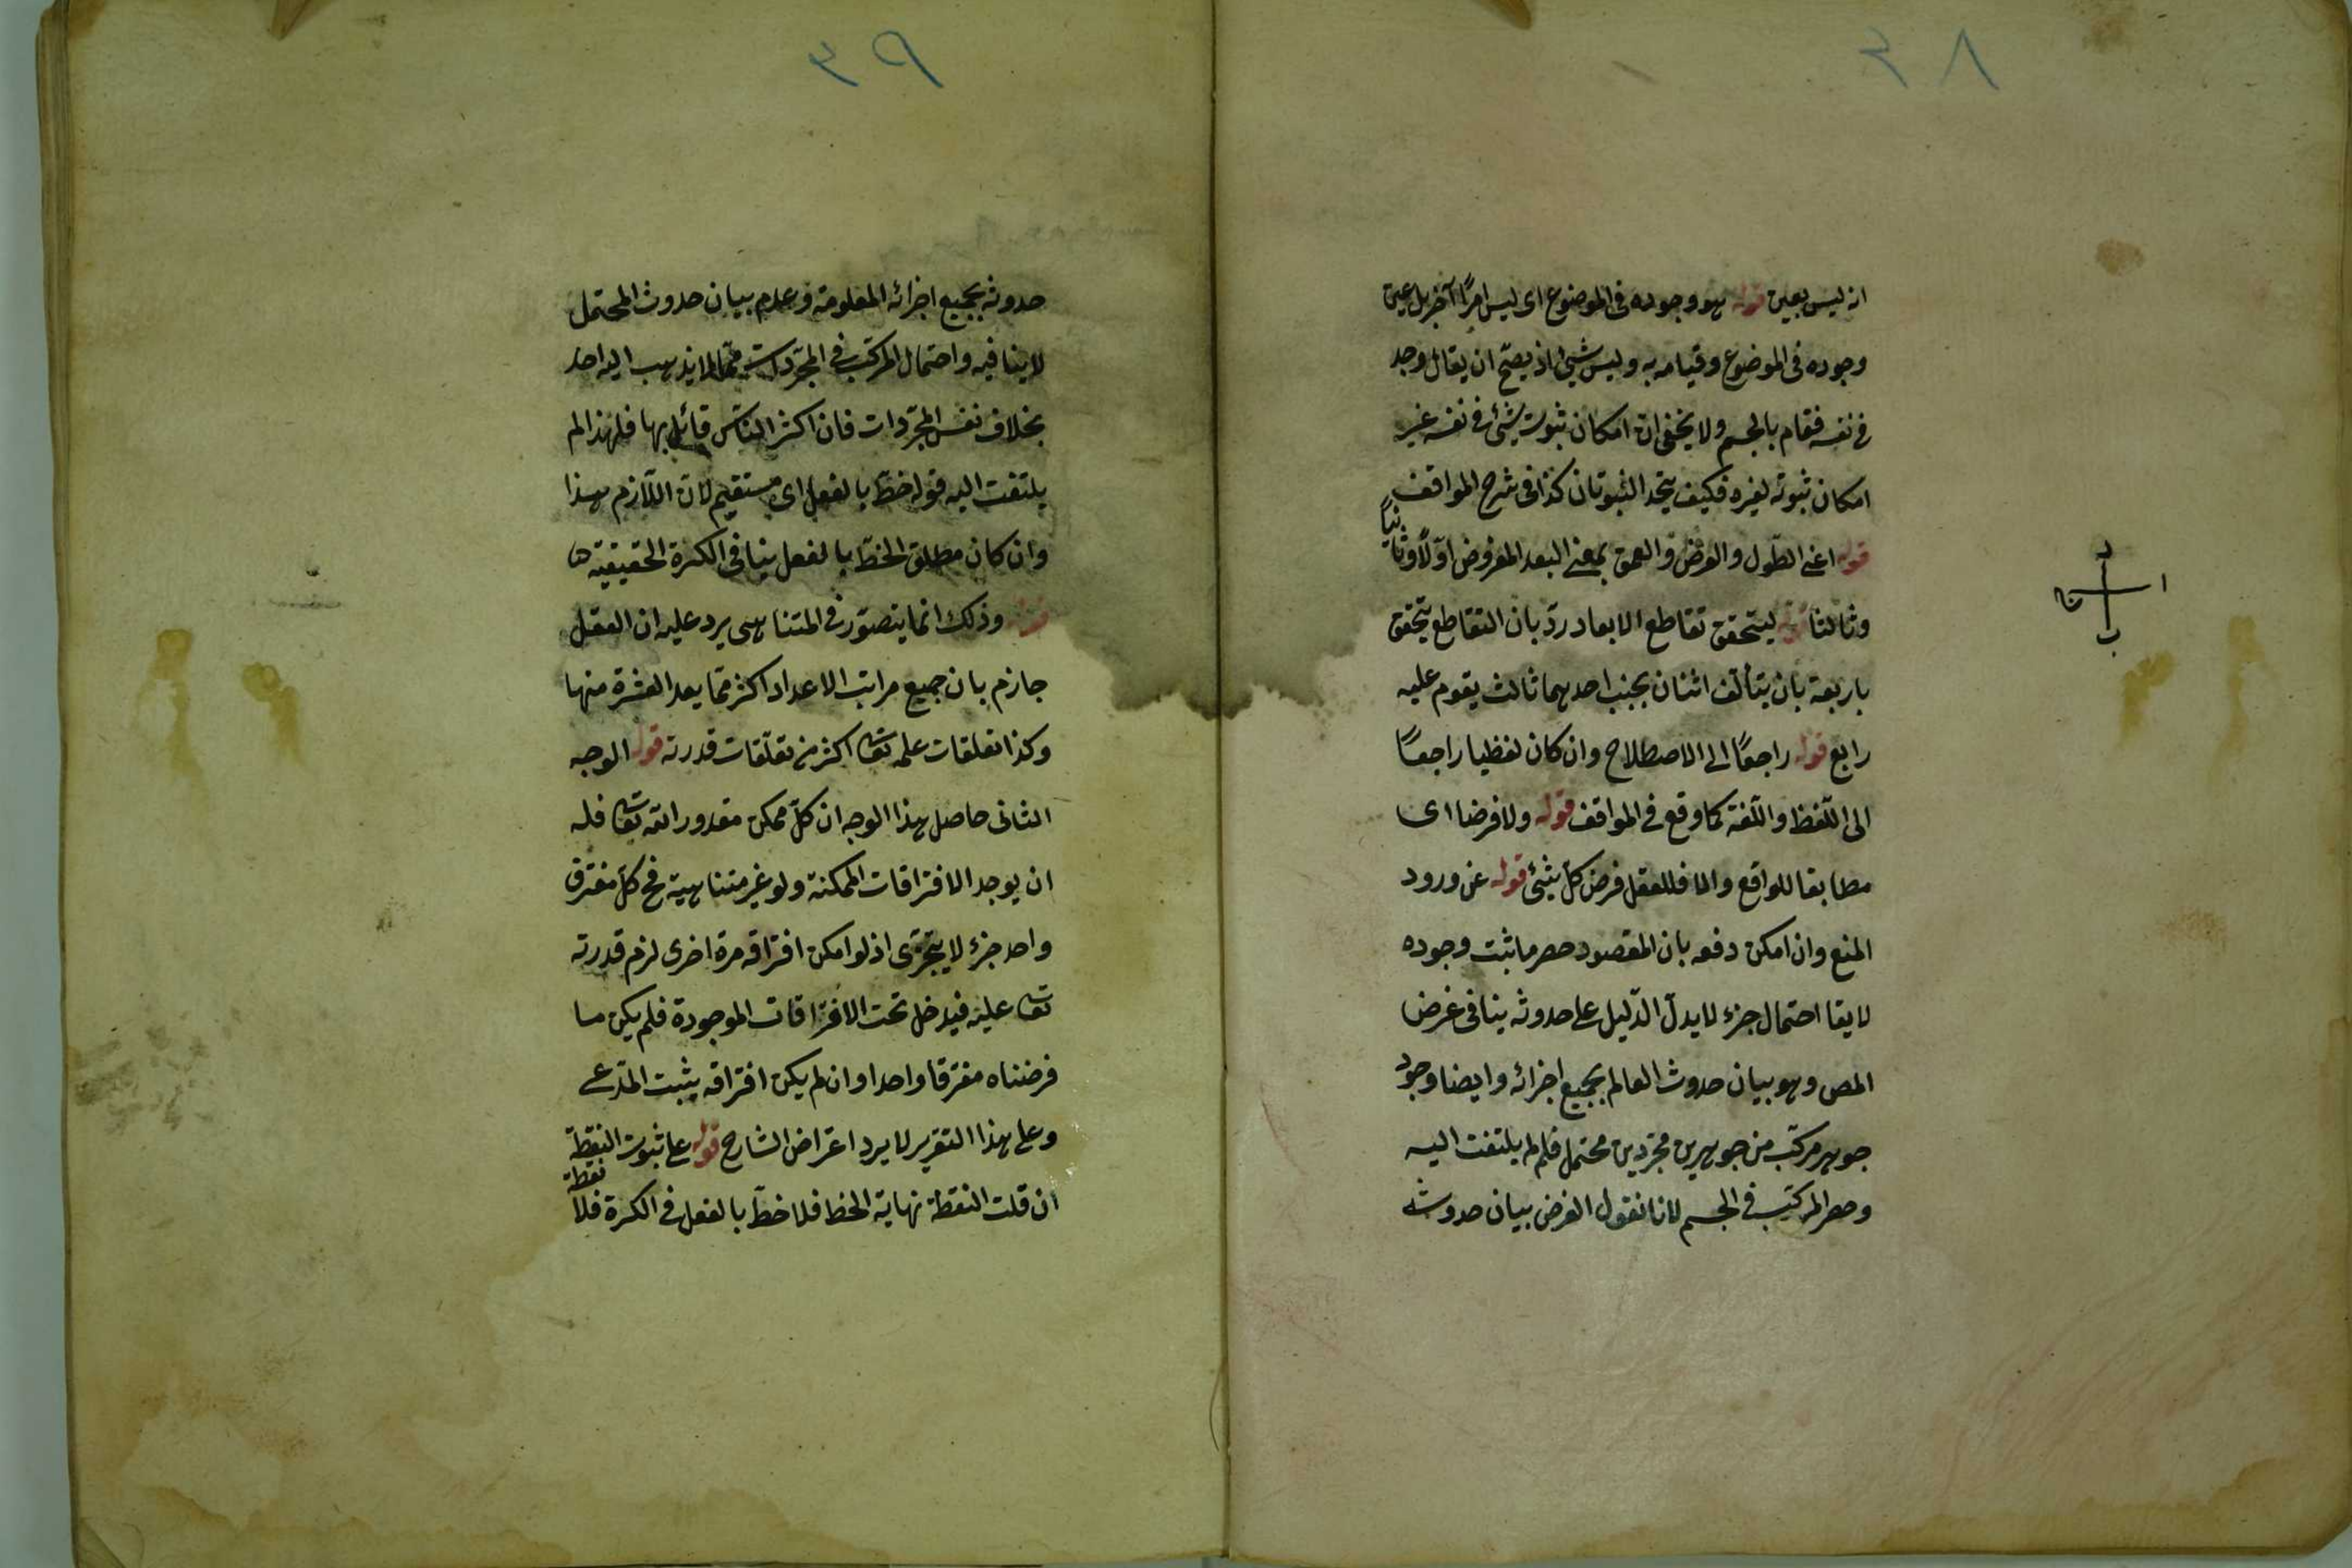 انه ليس بعين قوله هو وجوده فى الموضوع اى ليس امرًا آخر بل عين
وجوده فى الموضوع وقيامه به وليس بشئ اذ يصحّ ان يقال وجد
فى نفسه فقام بالجسم ولا يخفى ان امكان ثبوت شئ فى نفسه غير
امكان ثبوته لغيره فكيف يتحد الثبوتان كذا فى شرح المواقف
قوله اعنى الطّول والعرض والعمق بمعنى البعد المفروض اوّلًا وثانيًا
وثالثا قوله ليتحقق تقاطع الابعاد ردّ بان التقاطع يتحقق
باربعة بان يتألف اثنان بجنب احدهما ثالث يقوم عليه
رابع قوله راجعًا الى الاصطلاح وان كان لفظيا راجعًا
الى اللّفظ واللّغة كما وقع فى المواقف قوله ولا فرضا اى
مطابقا للواقع والا فللعقل فرض كلّ شئ قوله عن ورود
المنع وان امكن دفعه بان المقصود حصر ما ثبت وجوده
لا يقا احتمال جزء لا يدلّ الدّليل على حدوثه ينافى غرض
المص وهو بيان حدوث العالم بجميع اجزائه وايضا وجود
جوهر مركّب من جوهرين مجرّدين محتمل فلم لم يلتفت اليه
وحصر المركّب فى الجسم لانا نقول الغرض بيان حدوث
ا
د
ب
ج
حدوثه بجميع اجزائه المعلومة وعدم بيان حدوث المحتمل
لا ينافيه واحتمال المركّب فى المجرّدات ممّا لم يذهب اليه احد
بخلاف نفس المجرّدات فان اكثر الناس قائل بها فلهذا لم
يلتفت اليه قوله خطّ بالفعل اى مستقيم لانّ اللّازم هذا
وان كان مطلق الخطّ بالفعل ينافى الكرة الحقيقية
قوله وذلك انما يتصوّر فى المتناهى يرد عليه ان العقل
جازم بان جميع مراتب الاعداد اكثر ممّا بعد العشرة منها
وكذا تعلقات علمه تعا اكثر من تعلّقات قدرته قوله الوجه
الثانى حاصل هذا الوجه ان كلّ ممكن مقدور الله تعا فله
ان يوجد الافتراقات الممكنة ولو غير متناهية فح كلّ مفترق
واحد جزء لا يتجزّى اذ لو امكن افتراقه مرة اخرى لزم قدرته
تعا عليه فيدخل تحت الافتراقات الموجودة فلم يكن ما
فرضناه مفترقا واحدا وان لم يكن افتراقه يثبت المدّعى
وعلى هذا التقرير لا يرد اعتراض الشارح قوله على ثبوت النقطة
ان قلت النقطة نهاية الخط فلا خطّ بالفعل فى الكرة فلا نقطة